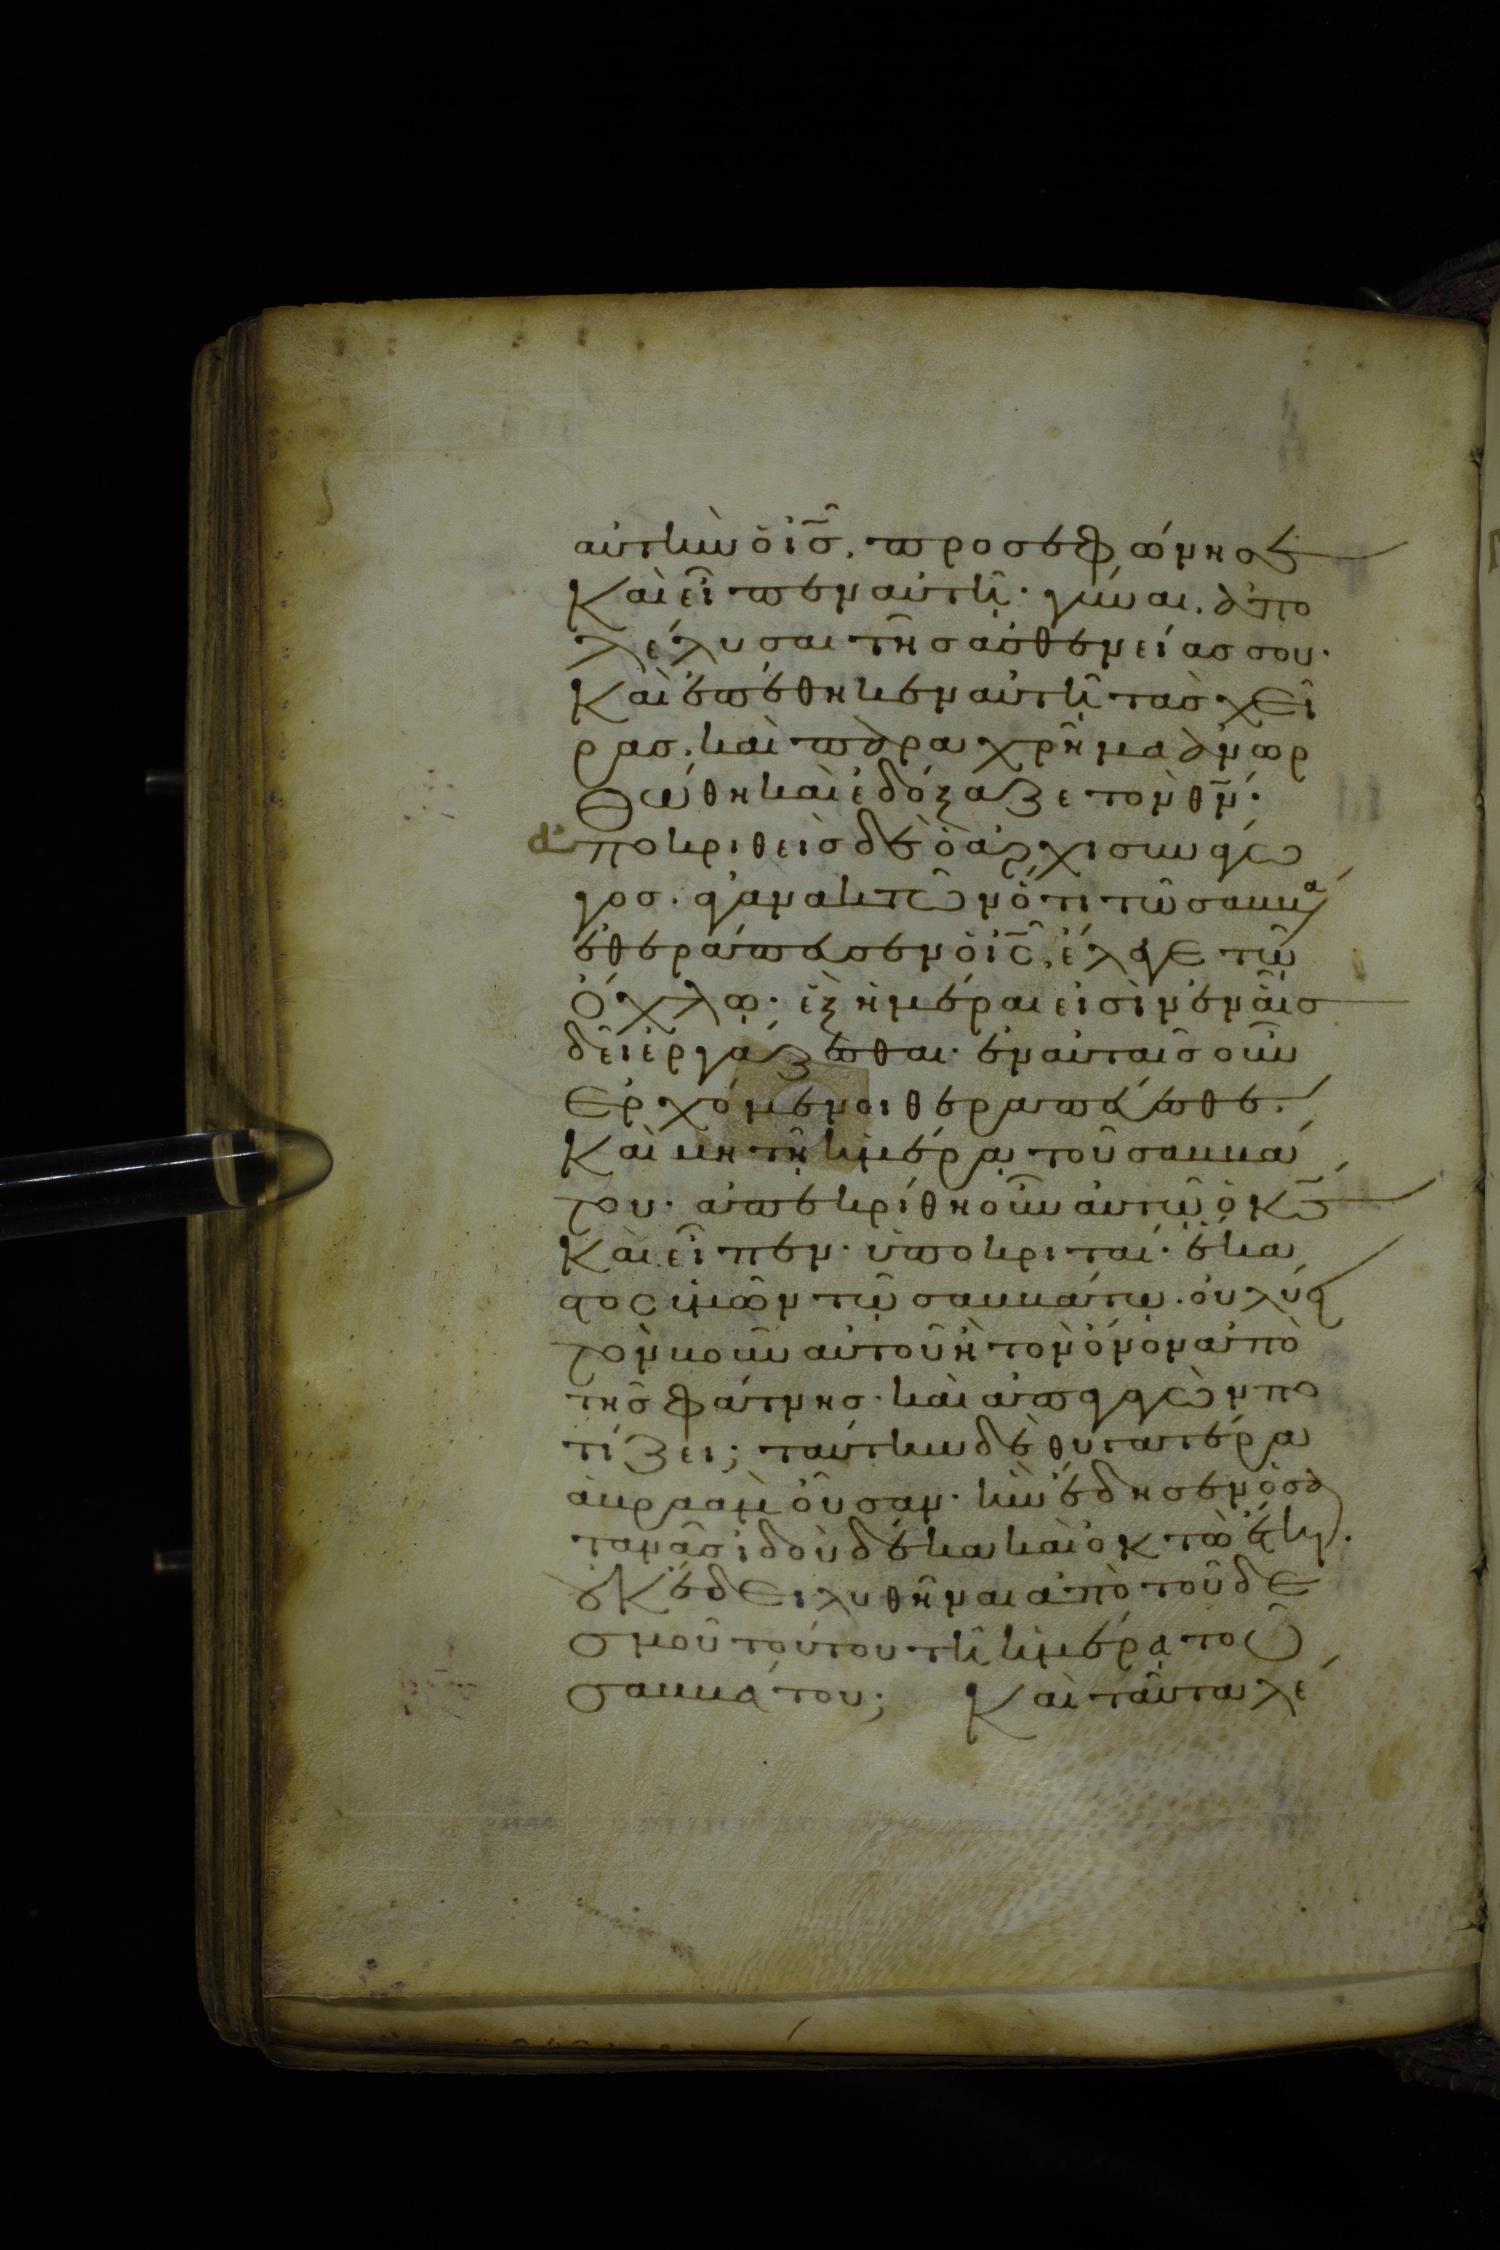 αὐτὴν ὁ ι̅σ̅, προσεφώνησε
Καὶ εἶπεν αὐτῆ· γύναι. ἀπο
λέλυσαι τῆς ἀσθενείας σου·
Καὶ ἐπέθηκεν αὐτῆ τὰς χεῖ
ρας. καὶ παραχρῆμα ἀνωρ
θώθη καὶ ἐδόξαζε τὸν θ̅ν̅·
ἀποκριθεὶς δὲ ὁ ἀρχισυνάγω
γος. ἀγανακτῶν ὅτι τῶ σαββά
ἐθεράπευσεν ὁ ι̅ς̅, ἔλεγε τῶ
ὄχλω· ἓξ ἡμέραι εἰσὶν ἐν αἷς
δεῖ ἐργάζεσθαι· ἐν αὐταῖς οὖν
ἐρχόμενοι θεραπεύεσθε.
Καὶ μὴ τῆ ἡμέρα τοῦ σαββά
του· ἀπεκρίθη οὖν αὐτῶ ὁ κ̅ς̅
Καὶ εἶπεν· ὑποκριταί· ἕκα
στος ὑμῶν τῶ σαββάτω· οὐ λύει
τὸν βοῦν αὐτοῦ ἢ τὸν ὄνον ἀπὸ
τῆς φάτνης· καὶ ἀπαγαγὼν πο
τίζει; ταύτην δὲ θυγατέρα
ἀβραὰμ οὖσαν· ἣν ἔδησεν ὁ σα
τανᾶς ἰδοὺ δέκα καὶ ὀκτὼ ἔτη.
οὐκ ἔδει λυθῆναι ἀπὸ τοῦ δε
σμοῦ τούτου τῆ ἡμέρα τοῦ
σαββάτου; Καὶ ταῦτα λέ